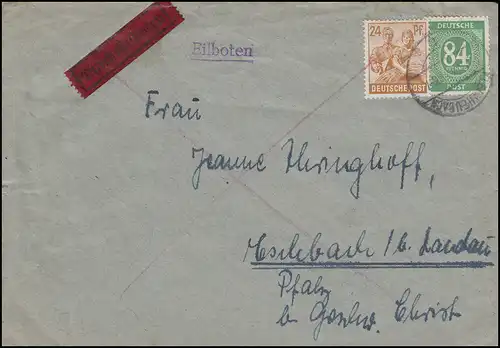 Eilboten
24 PF
DEUTSCHE POST
DEUTSCHE
84
PFENNIG
POST
Frau
Jeanne Thringhoff,
Eschbach / b. Landau
Pfalz
bei Christ